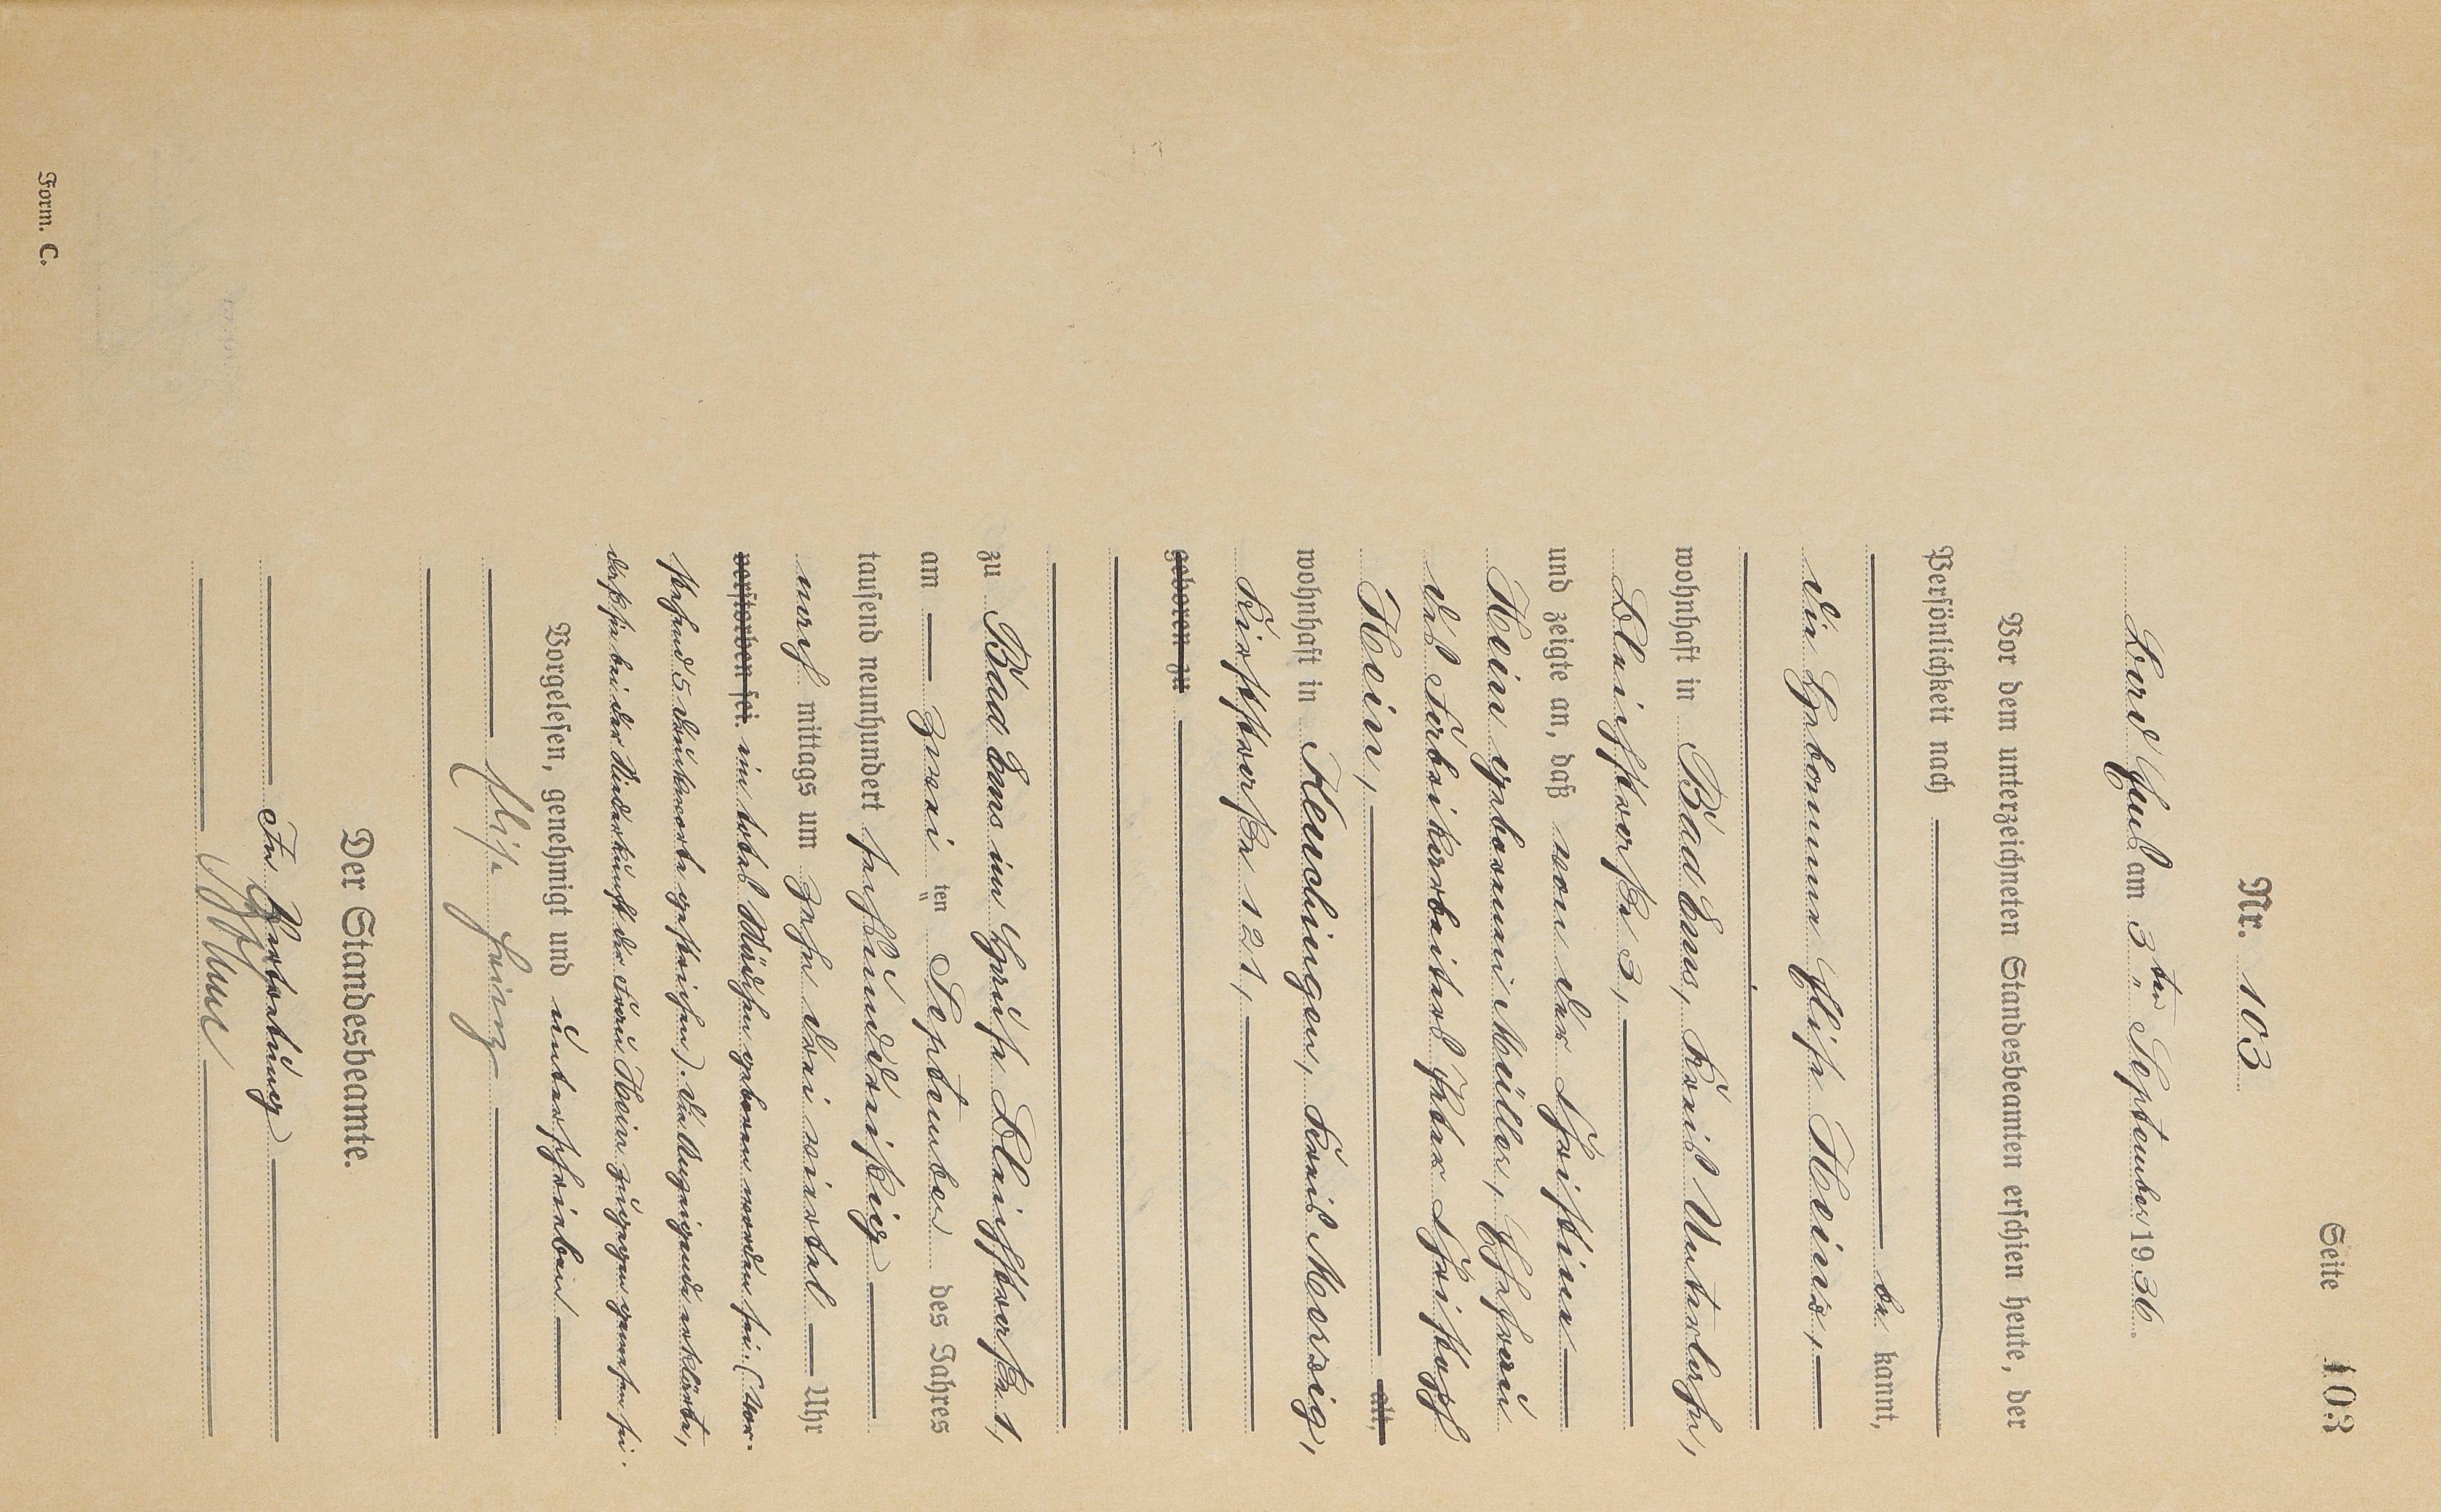 Seite 103
Nr. 103
Bad Ems am 3ten September 1936.
Vor dem unterzeichneten Standesbeamten erschien heute, der
Persönlichkeit nach
be kannt,
die Hebamme Elise Heinz,
wohnhaft in Bad Ems, Kreis Unterlahn,
Bleichstraße 3,
und zeigte an, daß von der Christine
Hein geborenen Müller, Ehefrau
des Fabrikarbeiters Peter Christoph
Hein, alt,
wohnhaft in Keuchingen, Kreis Merzig,
Kirchstraße 121,
geboren zu
zu Bad Ems im Hause Bleichstraße 1,
am zwei ten September des Jahres
tausend neunhundert sechsunddreißig
nach mittags um zehn drei viertel Uhr
verstorben sei. ein totes Mädchen geboren worden sei. (Vor-
stehend 5 Druckworte gestrichen). Die Anzeigende erklärte,
daß sie bei der Niederkunft der Frau Hein zugegen gewesen sei.
Vorgelesen, genehmigt und unterschrieben
Elise Heinz
Der Standesbeamte.
In Vertretung
Form. C.